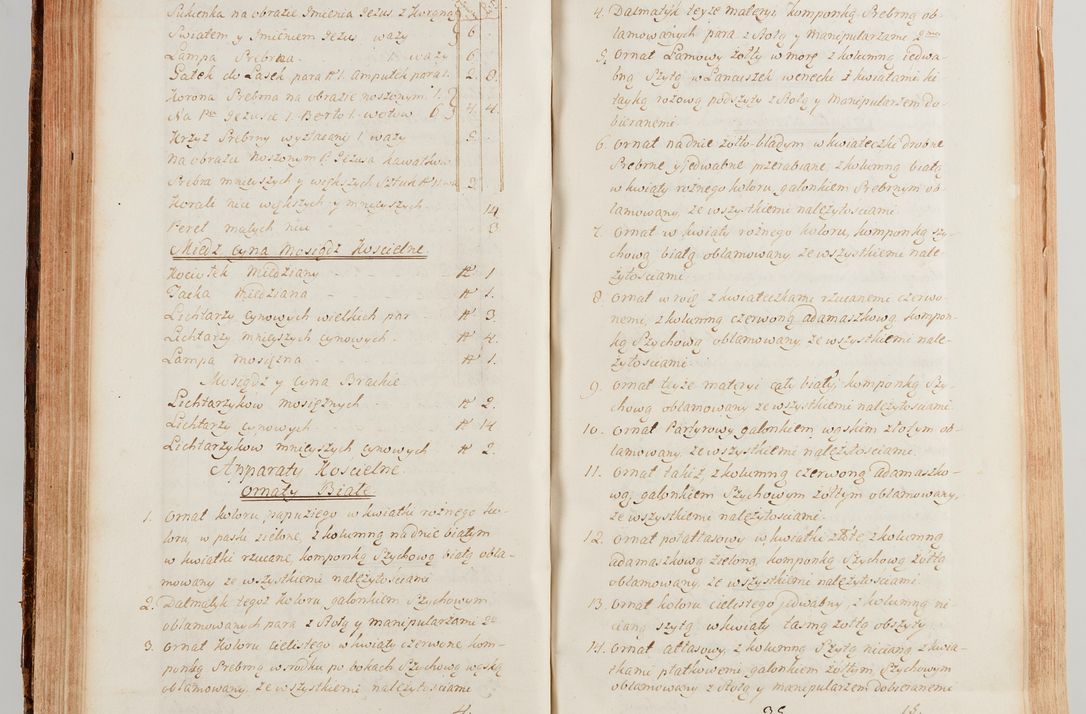 Sukienka na obrazie Imienia Jezus z Koroną
Swiatem y Imieniem Jezus waży 6 .
Lampa Srebrna waży 6
Gałek do Lasek para № 1. Ampułek para 1. 2. 8.
Korona Srebrna na obrazie noszonym 1.
Na Pnu Jezusie 1 Berło 1. wotow 6 4. 4.
Krzyż Srebrny wyzłacany 1 waży 2 .
na obrazu noszonym P. Jezusa kawałkow
Srebra mnieyszych y większych Sztuk 2.
Korali nici większych y mnieyszych 14
Pereł małych nici 3
Miedz Cyna Mosiądz Koscielne
Kociołek Miedziany № 1
Tacka Miedziana № 1.
Lichtarzy cynowych wielkich par № 3
Lichtarzy mnieyszych cynowych № 4.
Lampa mosiężna № 1.
Mosiądz y Cyna Brackie
Lichtarzykow mosiężnych № 2.
Lichtarzy cynowych № 14
Lichtarzyków mnieyszych cynowych № 2.
Apparaty Koscielne
Ornaty Białe
1. Ornat koloru papuziego w kwiatki rożnego ko-
loru, w paski zielone, z kolumną na dnie białym
w kwiatki rzucane, komponką Szychową białą obla-
mowany ze wszystkiemi należytościami
2. Dalmatyk tegoż koloru galonkiem Szychowym
oblamowanych para z Stołą y manipularzami 2ma
3. Ornat koloru cielistego w kwiaty czerwone kom-
ponką Srebrną w srodku po bokach Szychową wąską
oblamowany, ze wszystkiemi należytościami
4.
4. Dalmatyk teyże materyi komponką Srebrną ob-
lamowanych para z Stołą y manipularzami 2ma
5. Ornat Lamowy żółty w morę z kolumną jedwa-
bną Szytą w Łancuszek wenecki z kwiatami ki-
tayką rożową podszyty z Stołą y manipularzem do-
bieranemi
6 Ornat na dnie żółto-bladym w kwiateczki drobne
Srebrne y jedwabne przerabiane, z kolumną białą
w kwiaty rożnego koloru, galonkiem Srebrnym ob-
lamowany, ze wszystkiemi należytościami
7. Ornat w kwiaty rożnego koloru, komponką Szy-
chową białą oblamowany ze wszystkiemi nale-
żytościami.
8. Ornat w rożę z kwiateczkami rzucanemi czerwo-
nemi, z kolumną czerwoną adamaszkową kompon-
ką Szychową oblamowany, ze wszystkiemi nale-
żytościami.
9. Ornat teyże materyi cały biały, komponką Szy-
chową oblamowany ze wszystkiemi należytościami.
10. Ornat Parterowy galonkiem wąskim złotym ob-
lamowany, ze wszystkiemi należytościami.
11. Ornat takiż, z kolumną czerwoną adamaszko-
wą, galonkiem Szychowym żółtym oblamowany,
ze wszystkiemi należytościami.
12. Ornat połatłasowy w kwiatki złote, z kolumną
adamaszkową zieloną, komponką Szychową żółtą
oblamowany, ze wszystkiemi należytościami.
13. Ornat koloru cielistego jedwabny, z kolumną ni-
cianą, szytą w kwiaty tasmą żółtą obszyty.
14. Ornat atłasowy, z kolumną Szytą nicianą z kwia-
tkami płatkowemi galonkiem żółtym, Szychowym
oblamowany z Stołą y manipularzem dobieranemi
15.